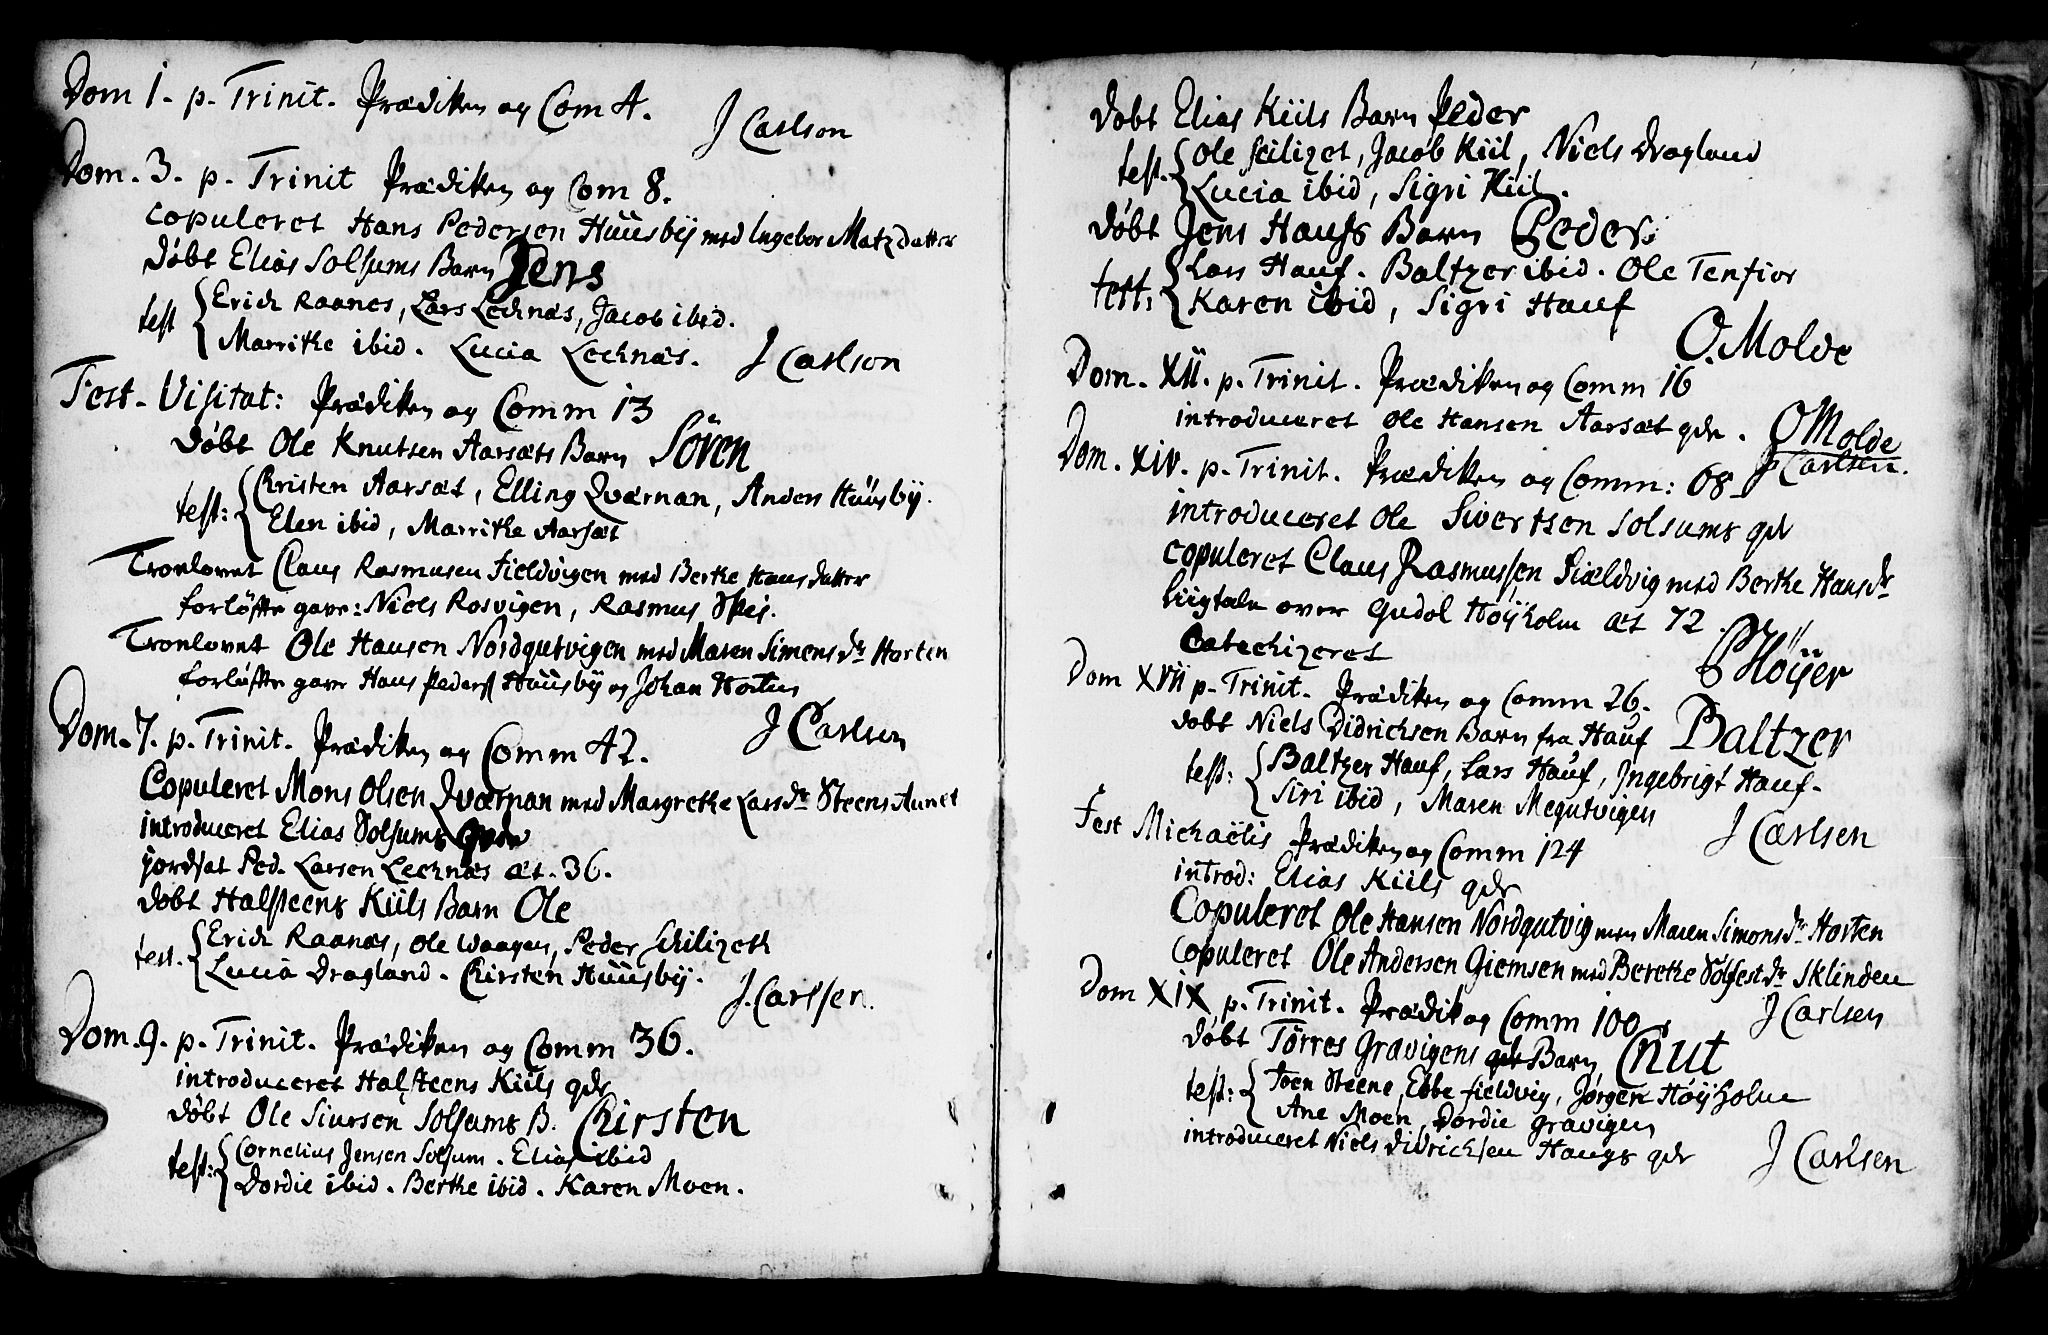 Dom 1. p. Trinit. Prædiken og Com 4.
J Carlson
Dom. 3. p. Trinit Prædiken og Com 8.
copuleret Hans Pedersen Huusbÿ med Ingebor Matzdatter
døbt Elias Solsums Barn Jens
test { Erich Raanes, Lars Lecknæs, Jacob ibid.
Marrithe ibid. Lucia Lecknæs. J Carlson
Fest. Visitat: Prædiken og Comm 13
døbt Ole Knutsen Aarsæts Barn Sören
test: { Christen Aarsæt, Elling Qværnan, Anders Huusbÿ.
Elen ibid, Marrithe Aarsæt
Troelovet Claus Rasmusen Fieldvigen med Berthe Hansdatter
forløffte gave: Niels Rosvigen, Rasmus Skei.
Troelovet Ole Hansen Nordgutvigen med Maren Simensdr Horten
forløffte gave Hans Peders Huusbÿ og Johan Horten
J Carlsen
Dom. 7. p. Trinit. Prædiken og Comm 42.
Copuleret Mons Olsen Qværnan med Margrethe Larsdr Steens Aunet
introduceret Elias Solsums qvde
jordsat Ped. Larsen Lecknæs æt. 36.
døbt Halsteens Kiils Barn Ole
test. { Erich Raanæs, Ole Waagen, Peder Schilizeth
Lucia Dragland. Chirsten Huusbÿ.
J. Carlsen.
Dom. 9. p. Trinit. Prædiken og Comm 36.
introduceret Halsteens Kiils qde
døbt Ole Siursen Solsums B. Chirsten
test: { Cornelius Jensen Solsum. Elias ibid
Dordie ibid. Berthe ibid. Karen Moen.
døbt Elias Kiils Barn Peder
test. { Ole Scilizet, Jacob Kiil, Niels Dragland
Lucia ibid, Sigri Kiil.
døbt Jens Haufs Barn Peder.
test: { Lars Hauf. Baltzer ibid. Ole Tenfior
Karen ibid, Sigri Hauf
O. Molde
Dom. XII. p. Trinit. Prædiken og Comm 16
introduceret Ole Hansen Aarsæt qde. O Molde
Dom. XIV. p. Trinit. Prædiken og Comm: 68 J Carlsen.
introduceret Ole Sivertsen Solsums qde
copuleret Claus Rasmussen Fiældvig med Berthe Hansdr
Liigtale over Gudol Høÿholm æt 72.
Catechizeret
Høÿer
Dom XVII p. Trinit. Prædiken og Comm 26.
døbt Niels Didrichsen Barn fra Hauf Baltzer
test: { Baltzer Hauf, Lars Hauf, Ingebrigt Hauf.
Siri ibid, Maren Megutvigen
J Carlsen
Fest Michaëlis Prædiken og Comm 124
introd: Elias Kiils qde
Copuleret Ole Hansen Nordgutvig med Maren Simonsdr Horten
copuleret Ole Andersen Giemsen med Berethe Sølfestdr Sklinden
Dom XIX p. Trinit. Prædik og Comm 100. J Carlsen
døbt Törres Gravigens qde Barn Cnut
test: { Joen Steene, Ebbe Fieldvig, Jørgen Høÿholm
Ane Moen, Dordie Gravigen
introduceret Niels Didrichsen Haugs qde J Carlsen